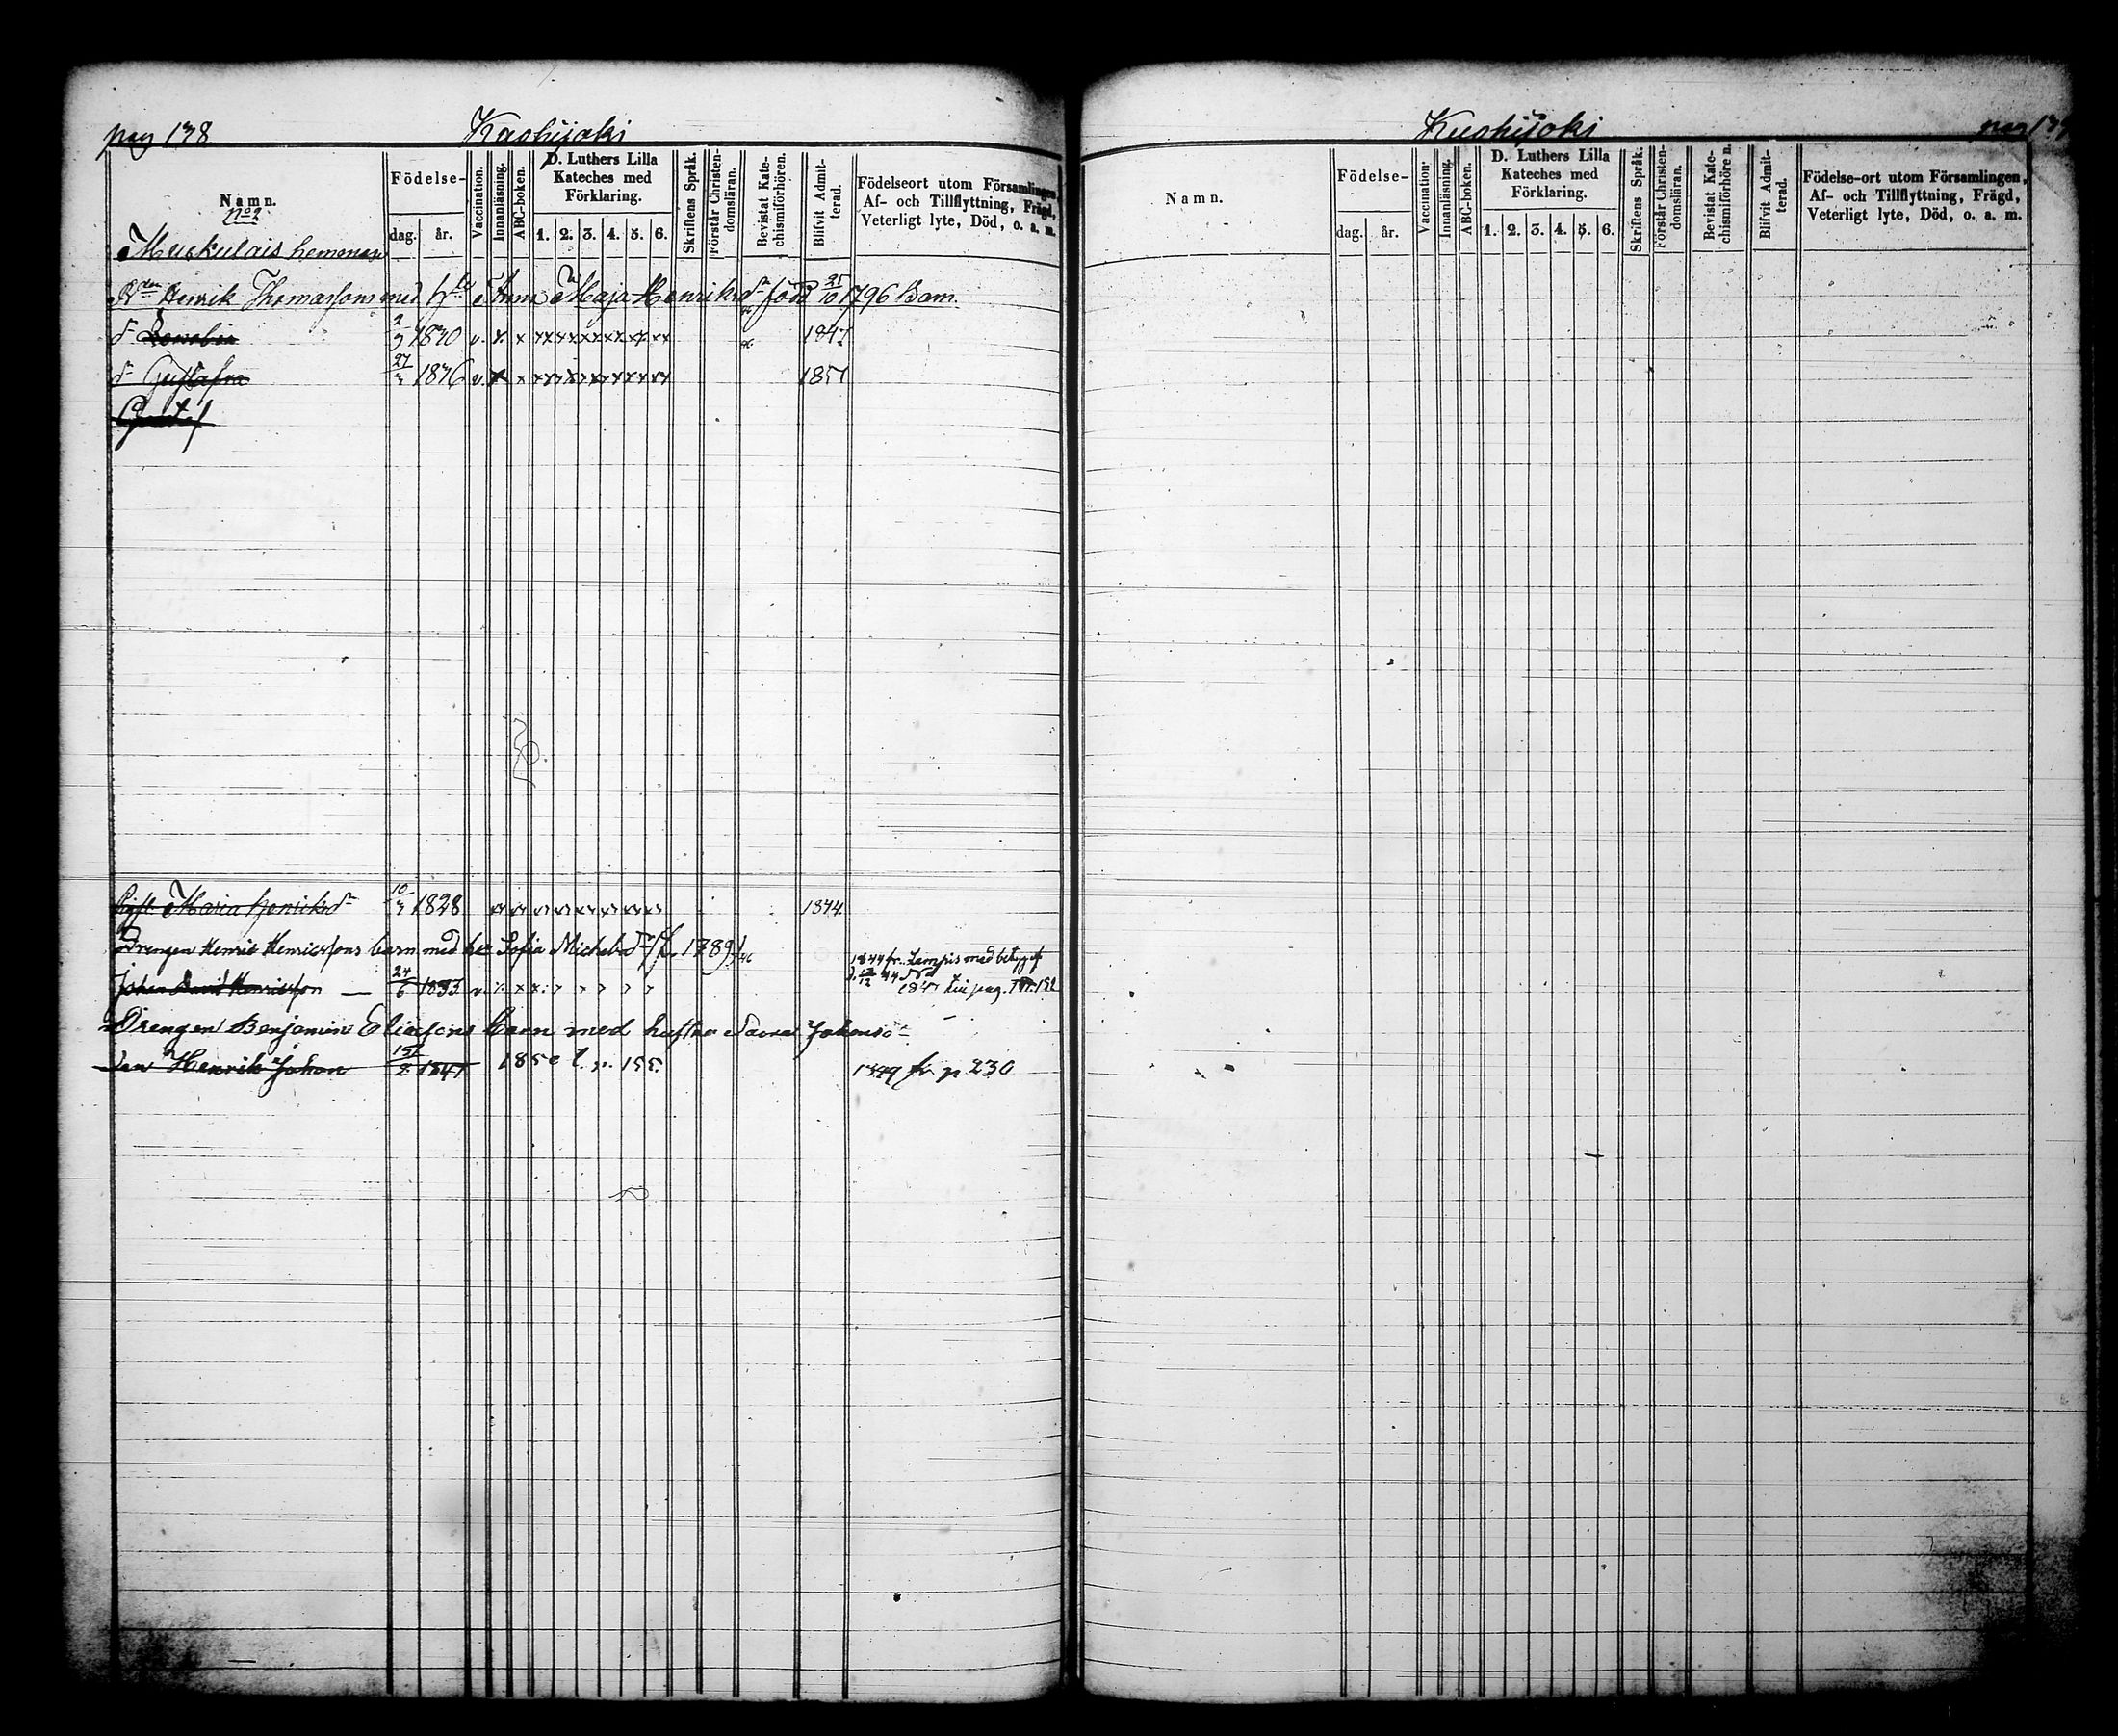 pag 138 Kaskijoki
Namn. Födelse- dag. år. Vaccination. Innanläsning. ABC-boken. D. Luthers Lilla Kateches med Förklaring. 1. 2. 3. 4. 5. 6. Skriftens Språk. Förstår Christendomsläran. Bevistat Katechismiförhören. Blifvit Admitterad. Födelseort utom Församlingen, Af- och Tillflyttning, Frägd, Veterligt lyte, Död, o. a. m.
No 2
Muskulais hemman
Henrik Thomassons med Anna Maja Henriksdr född 25/10 1796 Barn.
dr Lovisa 1830 v. x x 1847
dr Gustafva 27 1836 v. x x 1851
Gustaf
Maria Henriksdr 10 1828 1844
Drengen Henric Henricssons barn med h: Sofia Michelsdr 1789
1844 fr. Lampis med betyg
Johan David Henricsson — 24/6 1833 v. 1847 pag. 152
Drengen Benjamin Eliasons barn med hustru Johansdr
Son Henrik Johan 15/2 1847 1850 t. p. 155. 1849 fr p 230
Kaskijoki pag 139
Namn. Födelse- dag. år. Vaccination. Innanläsning. ABC-boken. D. Luthers Lilla Kateches med Förklaring. 1. 2. 3. 4. 5. 6. Skriftens Språk. Förstår Christendomsläran. Bevistat Katechismiförhören. Blifvit Admitterad. Födelse-ort utom Församlingen, Af- och Tillflyttning, Frägd, Veterligt lyte, Död, o. a. m.